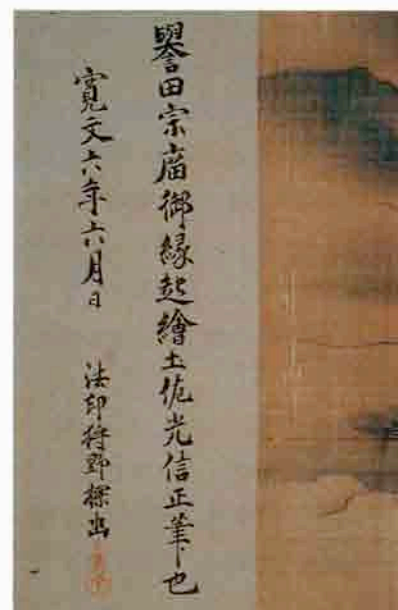 譽田宗廟御縁起繪土佐光信正筆也
寛文六年六月日 法印狩野探幽